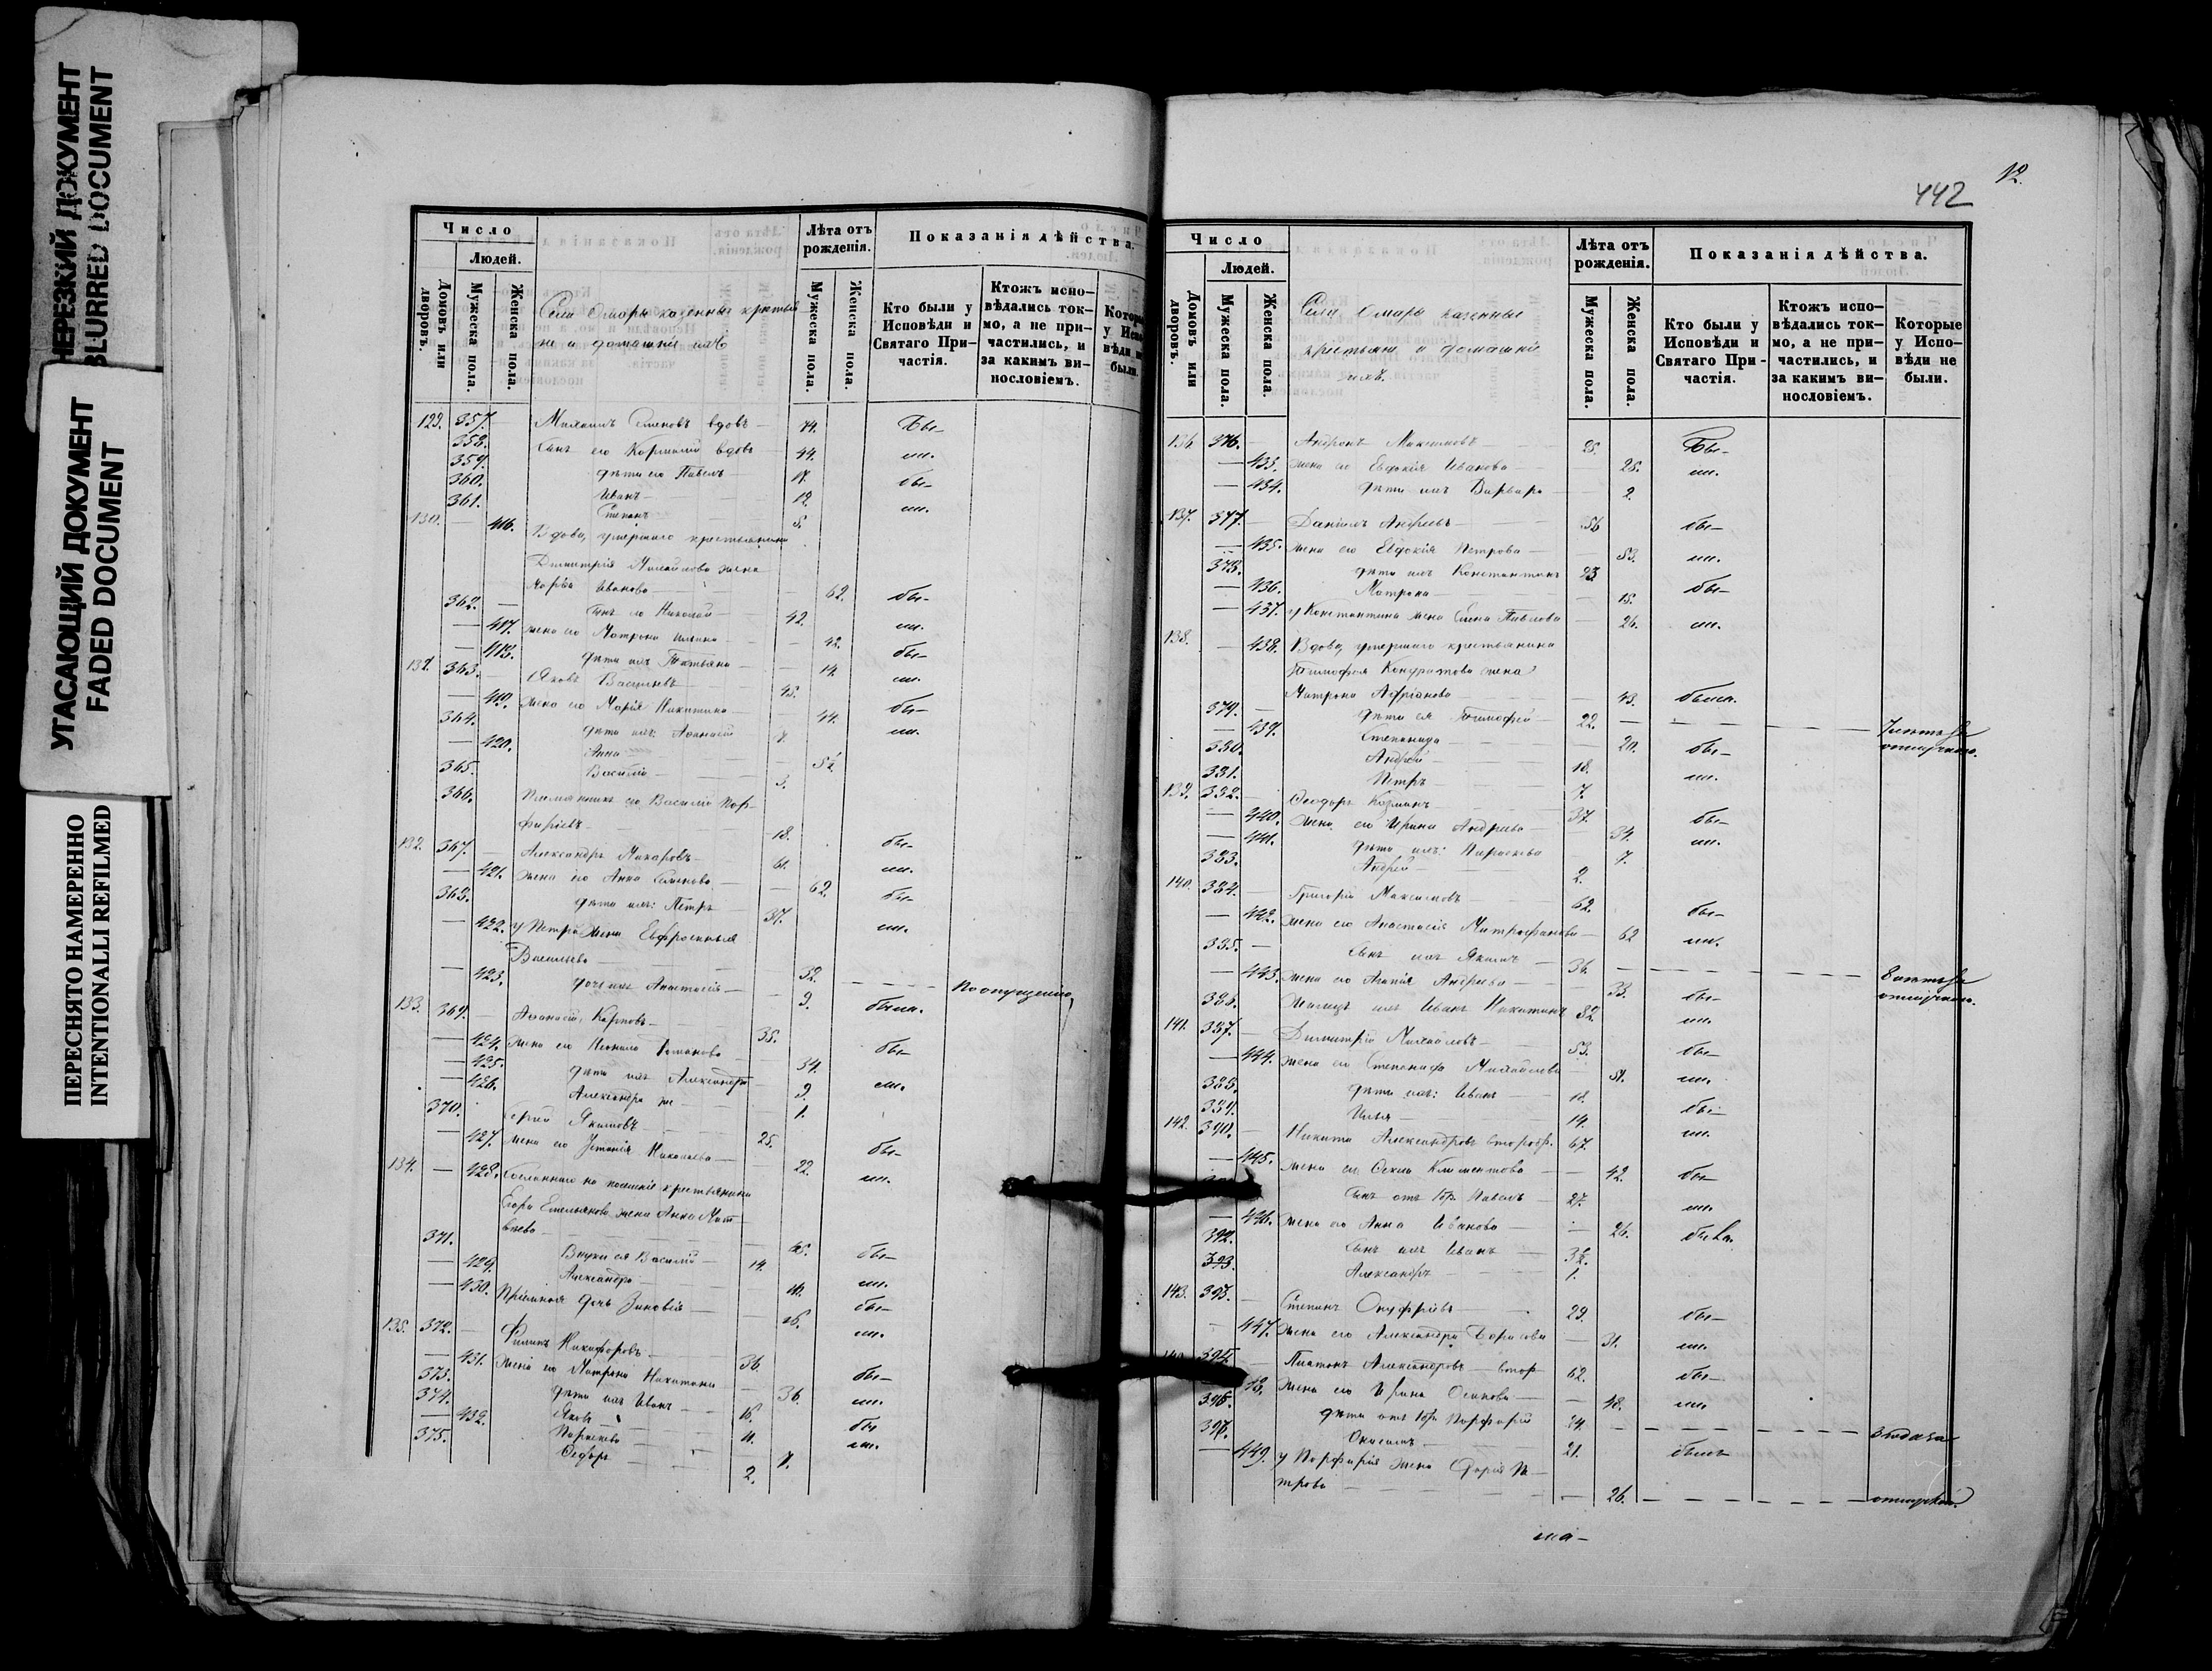 НЕРЕЗКИЙ ДОКУМЕНТ
BLURRED DOCUMENT
УГАСАЮЩИЙ ДОКУМЕНТ
FADED DOCUMENT
ПЕРЕСНЯТО НАМЕРЕННО
INTENTIONALLI REFILMED
Число
Людей.
Домовъ или дворовъ.
Мужеска пола.
Женска пола.
Села Омары казенные крестья
не и домашніе ихъ
Лѣта отъ рожденія.
Мужеска пола.
Женска пола.
Показанія дѣйства.
Кто были у Исповѣди и Святаго Причастія.
Ктожъ исповѣдались токмо, а не причастились, и за какимъ винословіемъ.
Которые у Исповѣди не были.
129. 357. Михаилъ Семеновъ вдовъ 74. Бы-
358. Сынъ его Корнилій вдовъ 44. ли.
359. дѣти его Павелъ 17. бы-
360. Иванъ 12. ли.
361. Степанъ 5.
130. 416. Вдова, умершаго крестьянина
Димитрія Михайлова жена
Марѳа Иванова 62. бы-
362. Сынъ ея Николай 42. ли.
417. жена его Матрона Ильина 42. бы-
418. дѣти ихъ Татьяна 14. ли.
131. 363. Яковъ Васильевъ 45. бы-
419. жена его Марія Никитина 44. ли.
364. дѣти ихъ: Аѳанасій 7.
420. Анна
365. Василій 3.
366. Племянникъ его Василій Пор-
фирьевъ 18. бы-
132. 367. Александръ Макаровъ 61. ли.
421. жена его Анна Семенова 62. бы-
368. дѣти ихъ: Петръ 37. ли.
422. у Петра жена Евфросинья
Васильева 32. По опущенію
423. дочь ихъ Анастасія 9. была.
133. 369. Аѳанасій Карповъ 35. бы-
424. жена его Неонила Романова 34. ли.
425. дѣти ихъ Александра 9.
426. Александра же 1.
370. Сергѣй Якимовъ 25. бы-
427. жена его Устинія Николаева 22. ли.
134. 428. Сосланнаго на поселеніе крестьянина
Егора Емельянова жена Анна Мат-
вѣева 65. бы-
371. Внуки ея Василій 14. ли.
429. Александра 10. бы-
430. Пріемная дочь Зиновія 16. ли.
135. 372. Филипъ Никифоровъ 36 бы-
431. жена его Матрона Никитина 36. ли.
373. дѣти ихъ Иванъ 16. бы
374. Яковъ 11. ли.
432. Параскева 7.
375. Ѳедоръ 2.
442
12.
Число
Людей.
Домовъ или дворовъ.
Мужеска пола.
Женска пола.
Села Омары казенные
крестьяне и домашніе
ихъ.
Лѣта отъ рожденія.
Мужеска пола.
Женска пола.
Показанія дѣйства.
Кто были у Исповѣди и Святаго Причастія.
Ктожъ исповѣдались токмо, а не причастились, и за какимъ винословіемъ.
Которые у Исповѣди не были.
136. 376. Андронъ Максимовъ 25. Бы-
433. жена его Евдокія Иванова 25. ли.
434. дѣти ихъ Варвара 2.
137. 377. Даніилъ Андреевъ 56 бы-
435. жена его Евдокія Петрова 53. ли.
378. дѣти ихъ Константинъ 23 бы-
436. Матрона 18.
437. у Константина жена Елена Павлова 26. ли.
138. 438. Вдова, умершаго крестьянина
Тимофея Кондратова жена
Матрона Адріанова 43. была.
379. дѣти ея Тимофей 22. 7 лѣтъ въ
439. Степанида 20. бы- отлучкѣ.
380. Андрей 18. ли.
381. Петръ 7.
139. 382. Ѳеодоръ Карпинъ 37. бы-
440. жена его Ирина Андреева 34. ли.
441. дѣти ихъ: Параскева 7.
383. Андрей 2.
140. 384. Григорій Максимовъ 62. бы-
442. жена его Анастасія Митрофанова 62 ли.
385. Сынъ ихъ Якимъ 36. 8 лѣтъ въ
443. жена его Агапія Андреева 33. бы- отлучкѣ.
386. Иванъ Никитинъ 82. ли.
141. 387. Димитрій Михайловъ 53. бы-
444. жена его Степанида Михайлова 51. ли.
388. дѣти ихъ: Иванъ 18. бы-
389. Илья 14. ли.
142. 390. Никита Александровъ второбр. 67.
445. жена его Ѳекла Климентова 42. бы-
Сынъ отъ 1бр. Павелъ 27. ли.
446. жена его Анна Иванова 26. была.
392. Сынъ ихъ Иванъ
393. Александръ 1.
143. Степанъ Онуфріевъ 29. бы-
447. жена его Александра Борисова 31. ли.
Платонъ Александровъ втор 62. бы-
жена его Ирина Осипова 48. ли.
396. дѣти отъ 1бр. Порфирій 24. 3 года въ
397. Онисимъ 21. былъ
449. у Порфирія жена Дарія Пе-
трова 26. отлучкѣ.